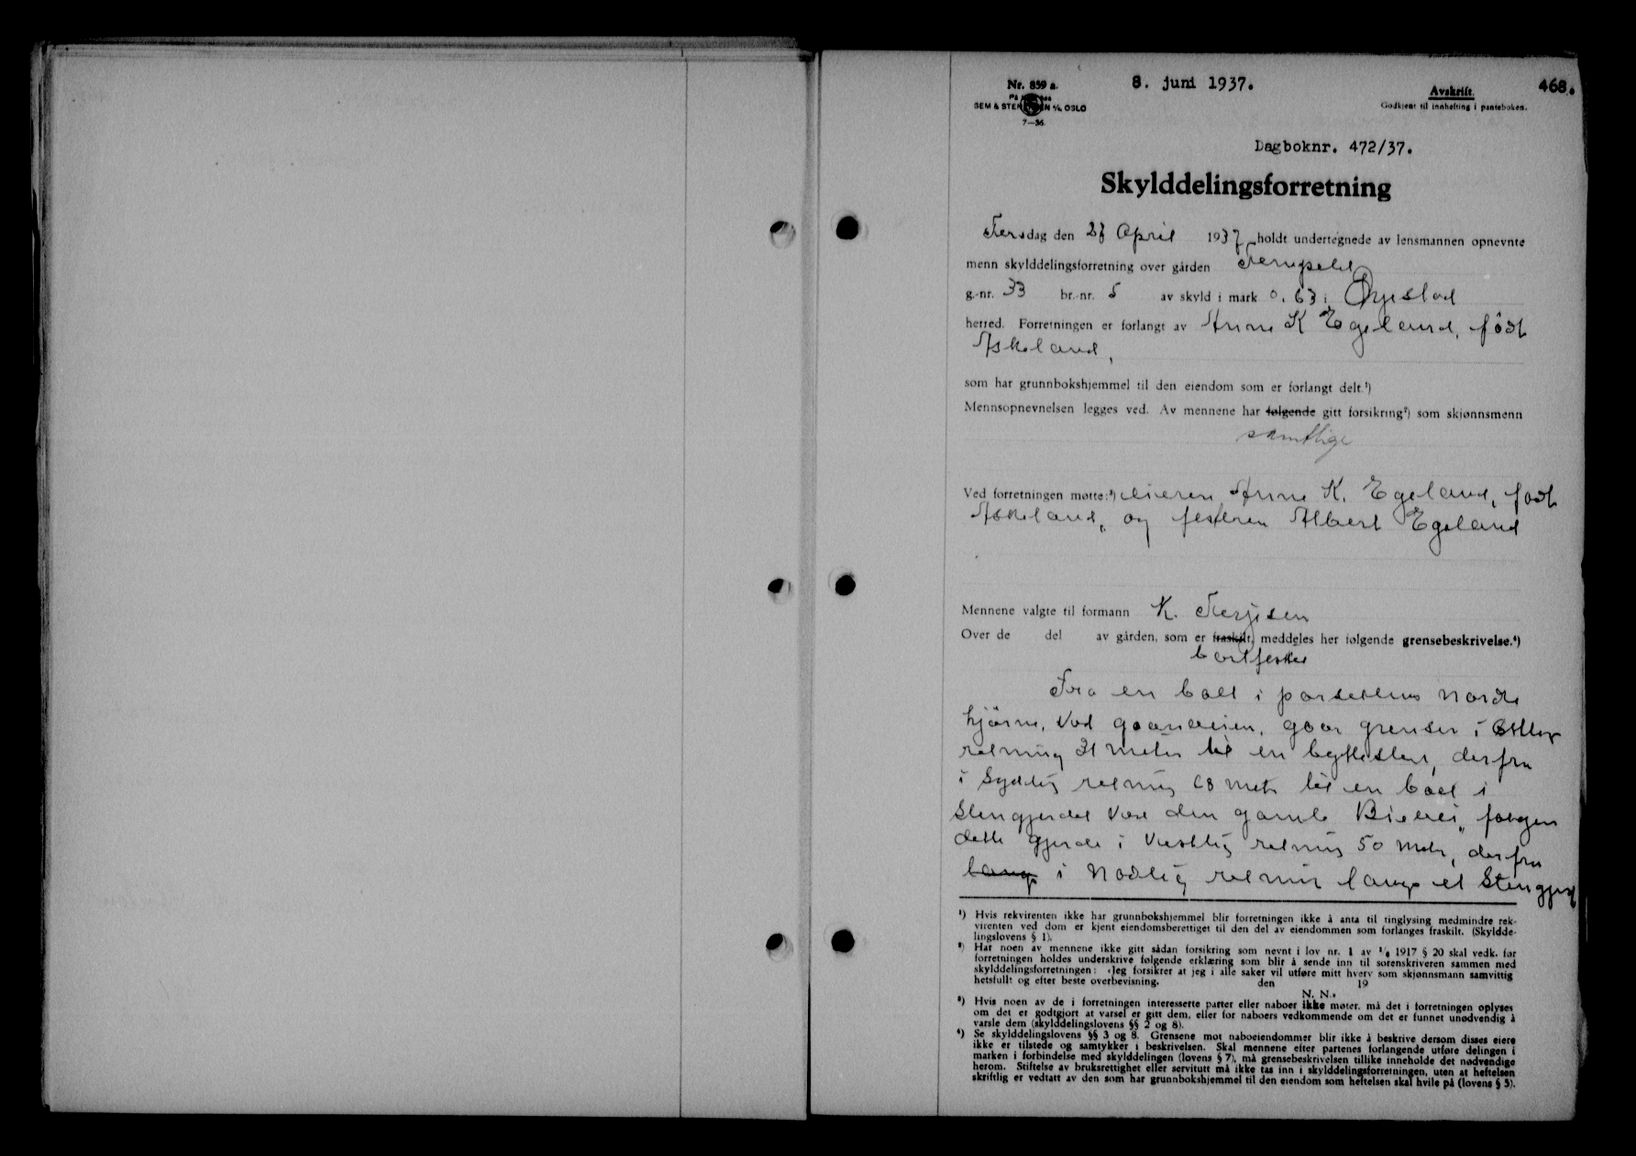 Nr. 859 a.
8. juni 1937.
Avskrift.
468.
SEM & STENERSEN A/S OSLO
Godkjent til innhefting i panteboken.
7—36.
Dagboknr. 472/37.
Skylddelingsforretning
Tirsdag den 27 April 1937 holdt undertegnede av lensmannen opnevnte
menn skylddelingsforretning over gården
g.-nr. 33 br.-nr. 5 av skyld i mark 0.63 i Øyestad
herred. Forretningen er forlangt av Anne K Egeland, født
Askeland,
som har grunnbokshjemmel til den eiendom som er forlangt delt.¹)
Mennsopnevnelsen legges ved. Av mennene har følgende gitt forsikring²) som skjønnsmenn
samtlige
Ved forretningen møtte:³) eieren Anne K. Egeland, født
Askeland, og festeren Albert Egeland
Mennene valgte til formann K. Terjesen
Over de del av gården, som er fraskilt, meddeles her følgende grensebeskrivelse.⁴)
bortfestet
Fra en bolt i parsellens nordre
hjörne, ved gaardveien, gaar grensen i östlig
retning 31 meter til en byttesten, derfra
i Sydlig retning 68 metr til en bolt i
Stengjerdet ved den gamle følger
dette gjerde i Vestlig retning 50 metr, derfra
langs i Nordlig retning langs et Stengjerde
¹) Hvis rekvirenten ikke har grunnbokshjemmel blir forretningen ikke å anta til tinglysing medmindre rek-
virenten ved dom er kjent eiendomsberettiget til den del av eiendommen som forlanges fraskilt. (Skyldde-
lingslovens § 1).
²) Har noen av mennene ikke gitt sådan forsikring som nevnt i lov nr. 1 av 1/6 1917 § 20 skal vedk. før
forretningen holdes underskrive følgende erklæring som blir å sende inn til sorenskriveren sammen med
skylddelingsforretningen: «Jeg forsikrer at jeg i alle saker vil utføre mitt hverv som skjønnsmann samvittig
hetsfullt og efter beste overbevisning. den 19
N. N.»
³) Hvis noen av de i forretningen interesserte parter eller naboer ikke møter, må det i forretningen oplyses
om det er godtgjort at varsel er gitt dem, eller for naboers vedkommende om det er funnet unødvendig å
varsle dem (skylddelingslovens §§ 2 og 8).
⁴) Se skylddelingslovens §§ 3 og 8. Grensene mot naboeiendommer blir ikke å beskrive dersom disses eiere
ikke er tilstede og samtykker i beskrivelsen. Skal mennene efter partenes forlangende utføre delingen i
marken i forbindelse med skylddelingen (lovens § 7), må grensebeskrivelsen tillike inneholde det nødvendige
herom. Stiftelse av bruksrettighet eller servitutt må ikke tas inn i skylddelingsforretningen, uten at heftelsen
skriftlig er vedtatt av den som har grunnbokshjemmel til den eiendom som heftelsen skal hvile på (lovens § 5).